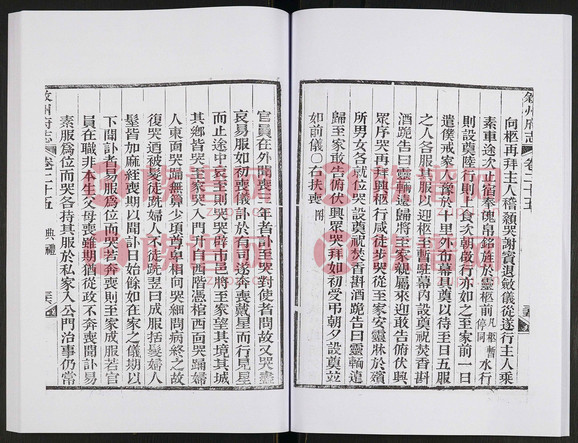 敘州府志 卷二十五
向柩再拜主人稽顙哭謝賓退斂儀從遂行主人乘
素車途次止宿奉魄帛銘旌於靈柩前凡柩暫停同水行
則設奠陸行則上食次朝啟行亦如之至家前一日
遣僕戒家人豫於十里外布幕具奠以待至日五服
之人各服其服以迎柩至暫駐幕內設奠祝焚香斟
酒跪告曰靈輀遠歸將至家親屬來迎敢告俯伏興
眾序哭再拜興柩行咸徒步哭從至家安靈牀於殯
所男女各就位哭設奠祝焚香斟酒跪告曰靈輀遠
歸至家敢告俯伏興眾哭拜如初受弔朝夕設奠並
如前儀○右扶喪附
官員在外聞喪三年者訃至哭對使者問故又哭盡
哀易服如初喪儀訃於有司遂奔喪戴星而行見星
而止途中哀至則哭哭辟市邑將至家望其境其城
其鄉皆哭至家哭入門升自西階憑棺西面哭踊婦
人東面哭踊無算少項尊卑相向哭細問病終之故
復哭迺被髮徒跣婦人不徒跣翌日成服括髮婦人
髽皆加麻絰喪期以聞訃日始餘如在家之儀期以
下聞訃者易服為位而哭若奔喪則至家成服若官
員在職非本生父母喪雖期猶從政不奔喪聞訃易
素服為位而哭各持其服於私家入公門治事仍常
敘州府志 卷二十五 典禮